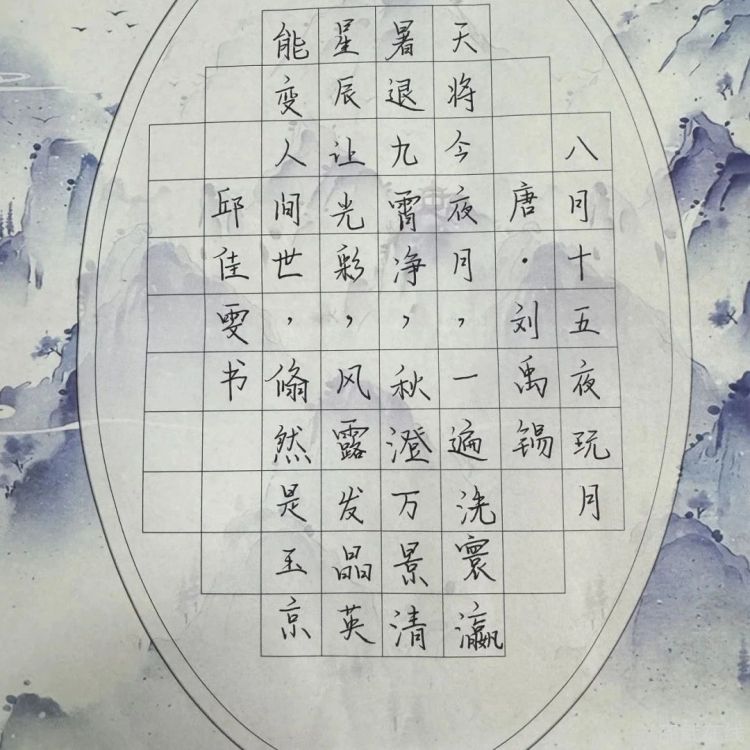 八月十五夜玩月
唐·刘禹锡
天将今夜月，一遍洗寰瀛
暑退九霄净，秋澄万景清
星辰让光彩，风露发晶英
能变人间世，翛然是玉京
邱佳雯书